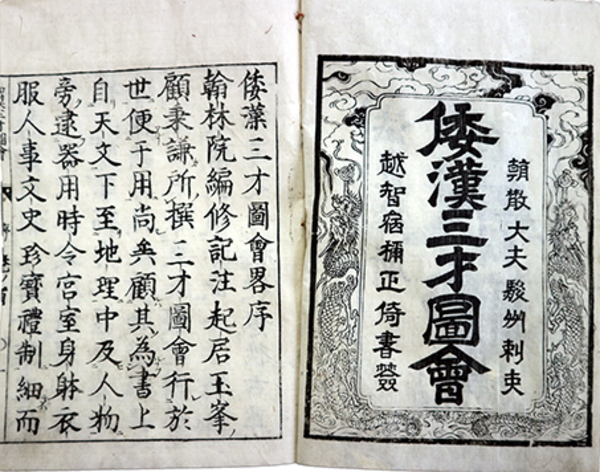 朝散大夫駿州刺吏
倭漢三才圖會
越智宿禰正倚書簽
倭漢三才圖會畧序
翰林院編修記注起居玉峯
顧秉謙所撰三才圖會行於
世便于用尚矣顧其為書上
自天文下至地理中及人物
旁逮器用時令宮室身躰衣
服人事文史珍寶禮制細而